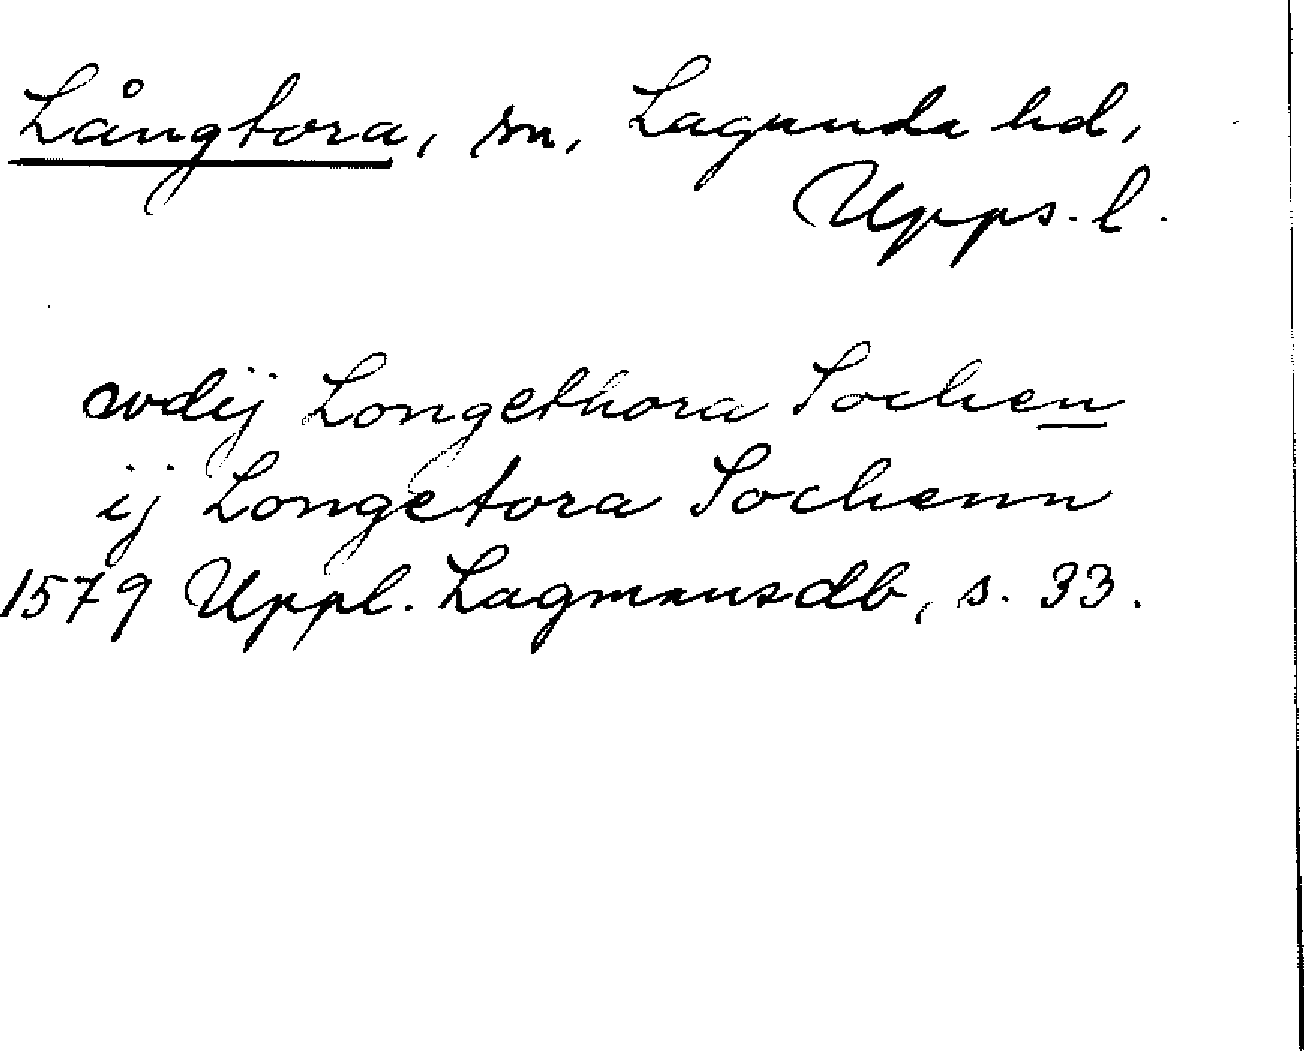 Långtora, sn, Lagunda hd,
Upps. l.
wdij Longethora Sochen
ij Longetora Sochenn
1579 Uppl. Lagmansdb, s. 33.